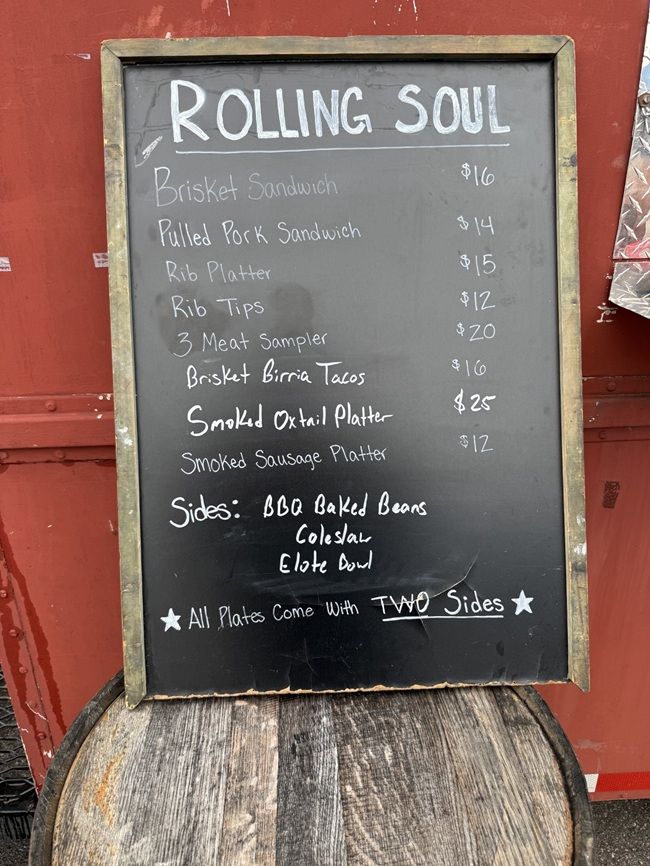 ROLLING SOUL
Brisket Sandwich $16
Pulled Pork Sandwich $14
Rib Platter $15
Rib Tips $12
3 Meat Sampler $20
Brisket Birria Tacos $16
Smoked Oxtail Platter $25
Smoked Sausage Platter $12
Sides: BBQ Baked Beans
Coleslaw
Elote Bowl
★ All Plates Come With TWO Sides ★